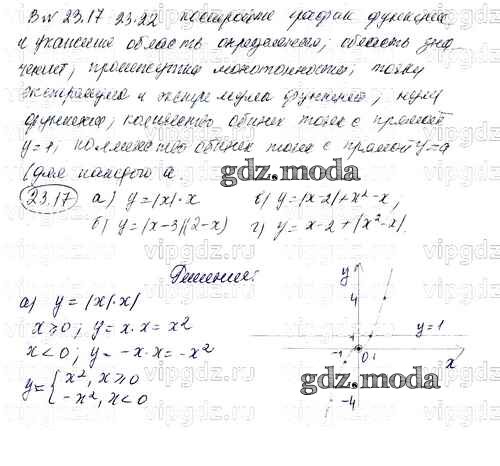 В № 23.17 23.22 постройте график функции
и укажите область определения; область зна
чений; промежутки монотонности; точки
экстремума и экстремумы функции; нули
функции; количество общих точек с прямой
y=1; количество общих точек с прямой y=a
(для каждого a
gdz.moda
23.17 а) y=|x|·x в) y=|x-2|+x²-x,
б) y=|x-3|(2-x) г) y=x-2+|x²-2|.
Решение:
а) y=|x|·x|
x≥0; y=x·x=x²
x<0; y=-x·x=-x²
y={x², x≥0
-x², x<0
y
4
y=1
-1 0 1 x
-4
gdz.moda
vipgdz.ru